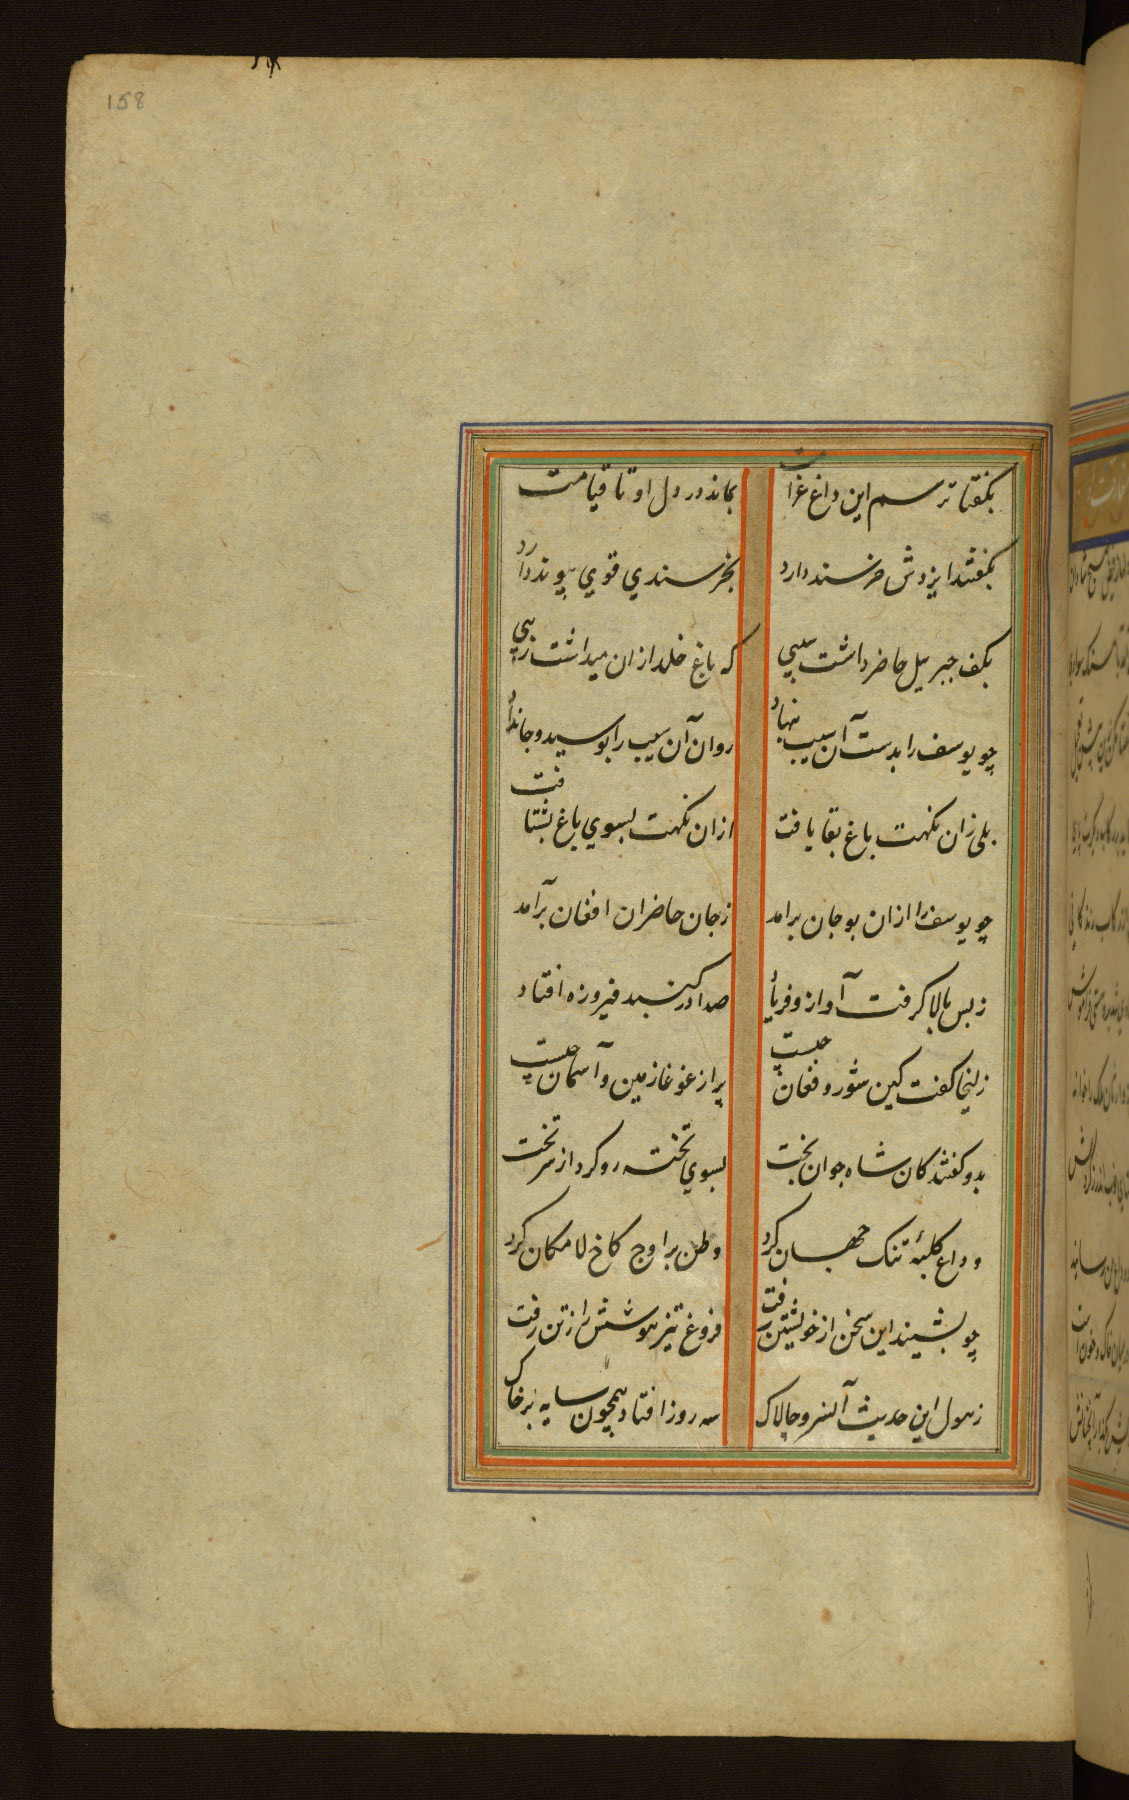 158
بكفتا ترسم این داغ غرامت
بماند در دل او تا قیامت
بكفتند ایزدش خرسند دارد
بخرسندي قوي پیوند دارد
بكف جبریل حاضر داشت سیبي
كه باغ خلد از ان میداشت زیبي
چو یوسف را بدست آن سیب بنهاد
روان آن سیب را بوسید و جانداد
بلی زان نكهت باغ بقا یافت
ازان نكهت بسوي باغ بشتافت
چو یوسف را ازان بو جان برامد
ز جان حاضران افغان برآمد
ز بس بالا كرفت آواز و فریاد
صدا در كنبد فیروزه افتاد
زلیخا كفت كین شور و فغان چیست
پر از غوغا زمین و آسمان چیست
بدو كفتند كان شاه جوان بخت
بسوي تخته رو كرد از سر تخت
وداع كلبهٔ تنك جهان كرد
وطن بر اوج كاخ لامكان كرد
چو بشنید این سخن از خویشتن رفت
فروغ تیز هوشش را ز تن رفت
ز هول این حدیث آن سرو چالاك
سه روز افتاد همچون سایه بر خاك